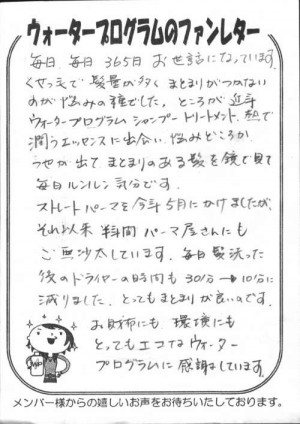 ウォータープログラムのファンレター
毎日、毎日 365日 お世話になっています。
くせっ毛で 髪量が多く まとまりがつかない
のが 悩みの種でした。ところが 近年
ウォータープログラム シャンプー トリートメント、熱で
潤うエッセンスに出会い 悩みどころか
つやが出て まとまりのある髪を鏡で見て
毎日ルンルン気分です。
ストレートパーマを今年5月にかけましたが、
それ以来 半年間 パーマ屋さんにも
ご無沙太しています。毎日髪洗った
後のドライヤーの時間も 30分→10分に
減りました。とってもまとまりが良いのです。
お財布にも 環境にも
とってもエコな ウォーター
プログラムに 感謝しています。
メンバー様からの嬉しいお声をお待ちいたしております。